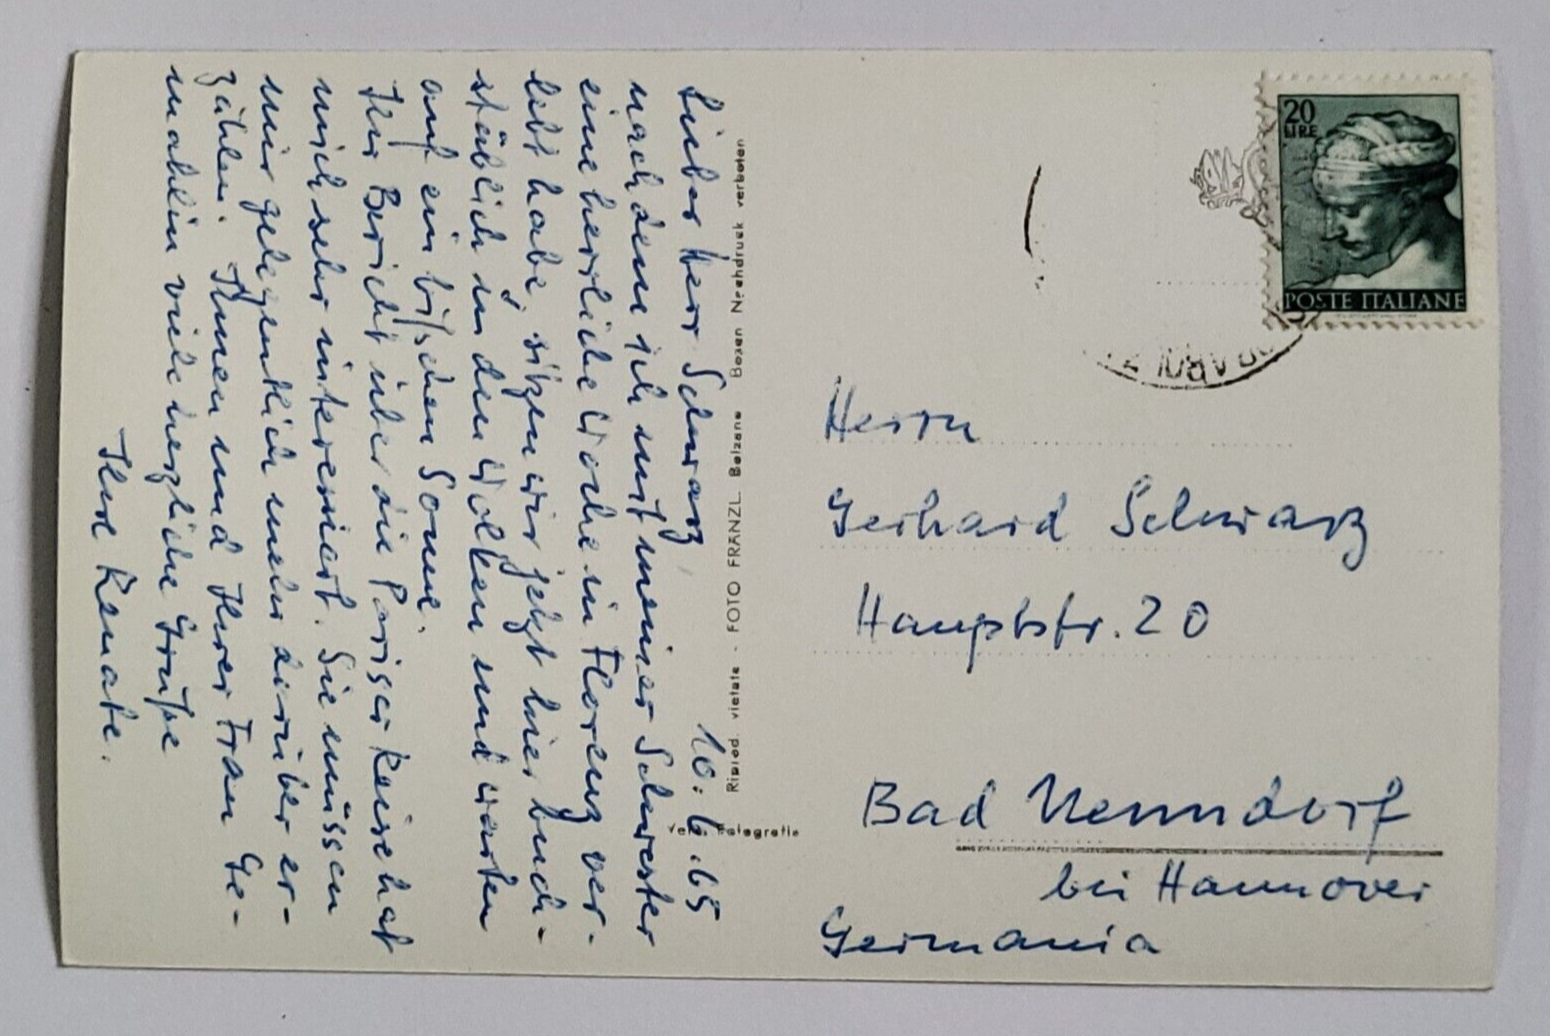 10.6.65
Lieber Herr Schwarz,
nachdem ich mit meiner Schwester
eine herrliche Woche in Florenz ver-
lebt habe, sitzen wir jetzt hier buch-
stäblich in den Wolken und warten
auf ein bißchen Sonne.
Ihr Bericht über die Pariser Reise hat
mich sehr interessiert. Sie müssen
mir gelegentlich mehr darüber er-
zählen. Ihnen und Ihrer Frau Ge-
mahlin viele herzliche Grüße
Ihre Renate.
Riprod. vietata - FOTO FRANZL Bolzano Bozen Nachdruck verboten
Vera Fotografia
20
LIRE
POSTE ITALIANE
Herrn
Gerhard Schwarz
Hauptstr. 20
Bad Nenndorf
bei Hannover
Germania